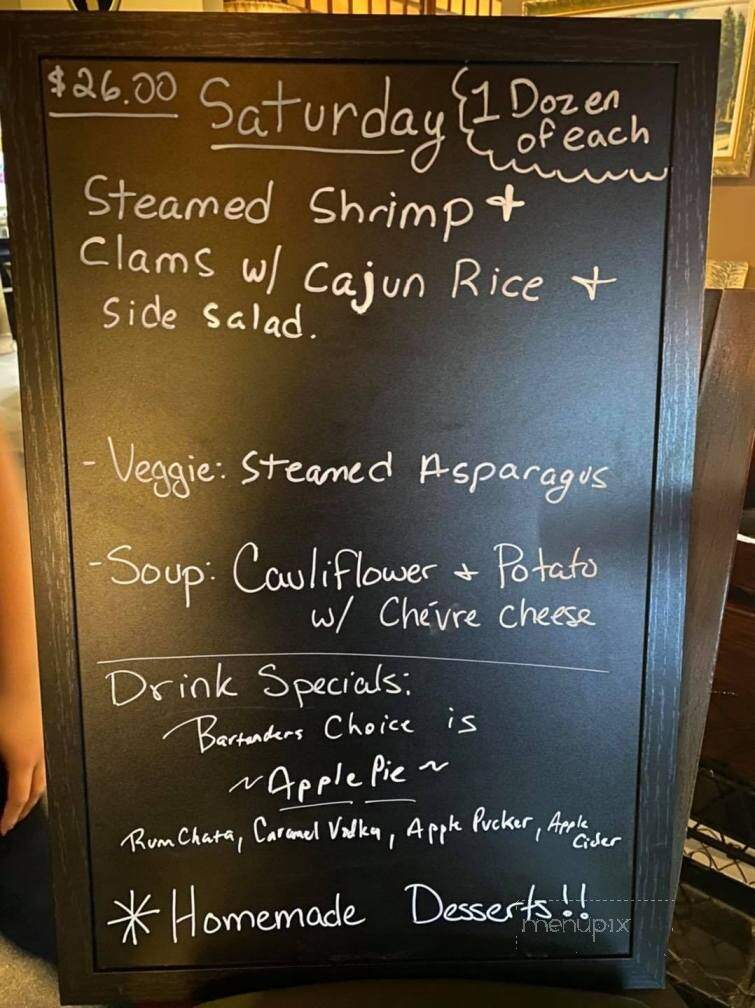 $26.00 Saturday 1 Dozen
of each
Steamed Shrimp +
Clams w/ Cajun Rice +
side salad.
- Veggie: Steamed Asparagus
- Soup: Cauliflower + Potato
w/ Chévre cheese
Drink Specials:
Bartenders Choice is
~ Apple Pie ~
RumChata, Caramel Vodka, Apple Pucker, Apple
Cider
* Homemade Desserts!!
menupix